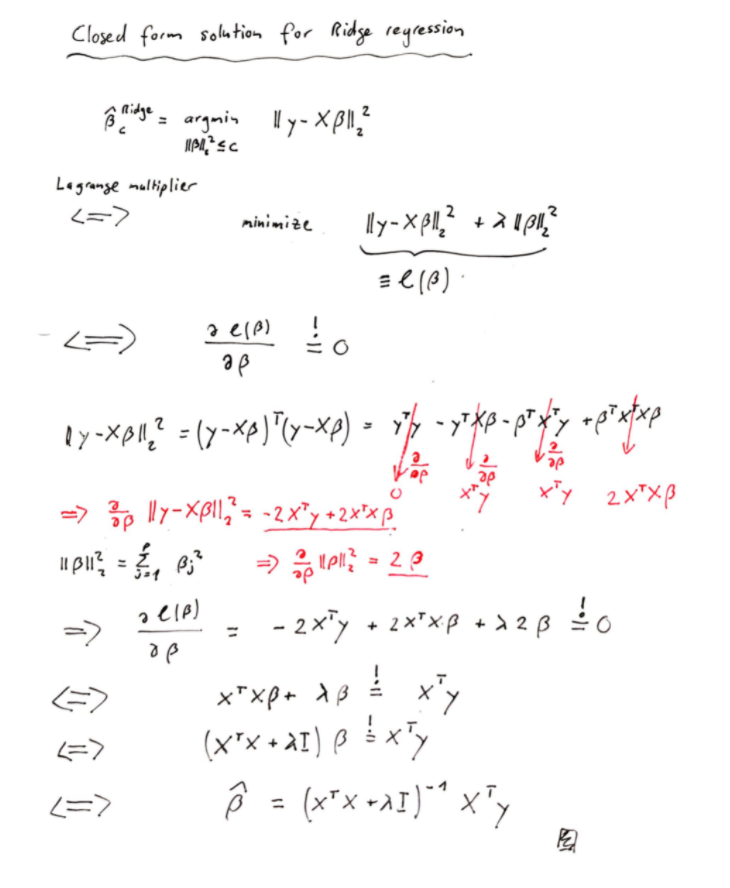 Closed form solution for Ridge regression
β̂_c^Ridge = argmin_{‖β‖₂² ≤ c} ‖y - Xβ‖₂²
Lagrange multiplier
<=> minimize ‖y-Xβ‖₂² + λ‖β‖₂²
≡ ℓ(β).
<=> ∂ℓ(β)/∂β =! 0
‖y-Xβ‖₂² = (y-Xβ)ᵀ(y-Xβ) = yᵀy - yᵀXβ - βᵀXᵀy + βᵀXᵀXβ
∂/∂β ∂/∂β ∂/∂β
0 Xᵀy Xᵀy 2XᵀXβ
=> ∂/∂β ‖y-Xβ‖₂² = -2Xᵀy + 2XᵀXβ
‖β‖₂² = Σ_{j=1}^{p} βⱼ² => ∂/∂β ‖β‖₂² = 2β
=> ∂ℓ(β)/∂β = -2Xᵀy + 2XᵀX·β + λ2β =! 0
<=> XᵀXβ + λβ =! Xᵀy
<=> (XᵀX + λI) β =! Xᵀy
<=> β̂ = (XᵀX + λI)⁻¹ Xᵀy